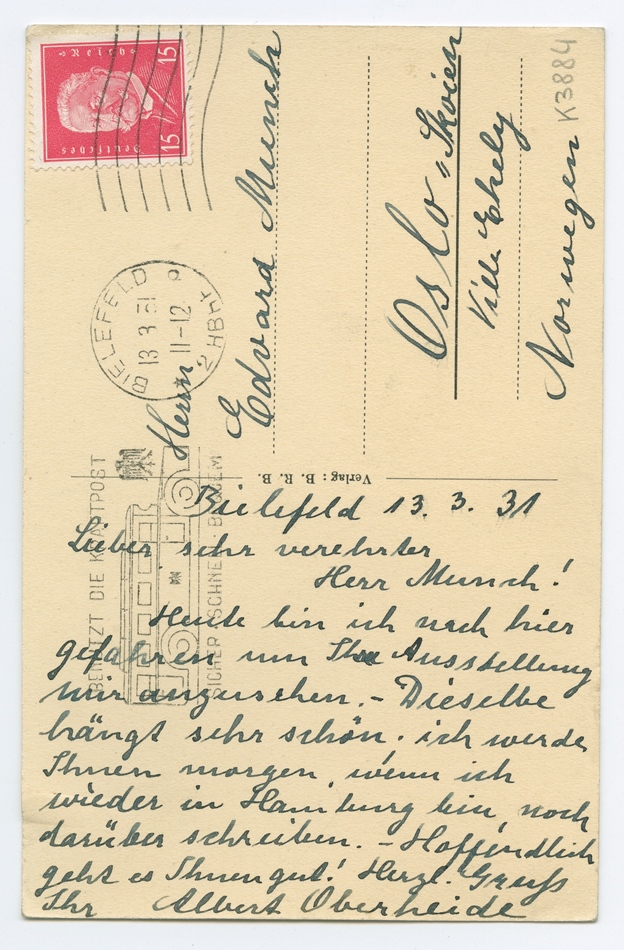 Deutsches
Reich
15
15
BIELEFELD 2
13 3 31
11-12
BENUTZT DIE KRAFTPOST
SICHER SCHNELL BEQUEM
K3884
Herrn
Edvard Munch
Oslo-Skøien
Villa Ekely
Norwegen
Verlag: B. R. B.
Bielefeld 13. 3. 31
Lieber sehr verehrter
Herr Munch!
Heute bin ich nach hier
gefahren um Ihre Ausstellung
mir anzusehen. – Dieselbe
hängt sehr schön. ich werde
Ihnen morgen, wenn ich
wieder in Hamburg bin, noch
darüber schreiben. – Hoffendlich
geht es Ihnen gut! Herzl. Gruß
Ihr Albert Oberheide